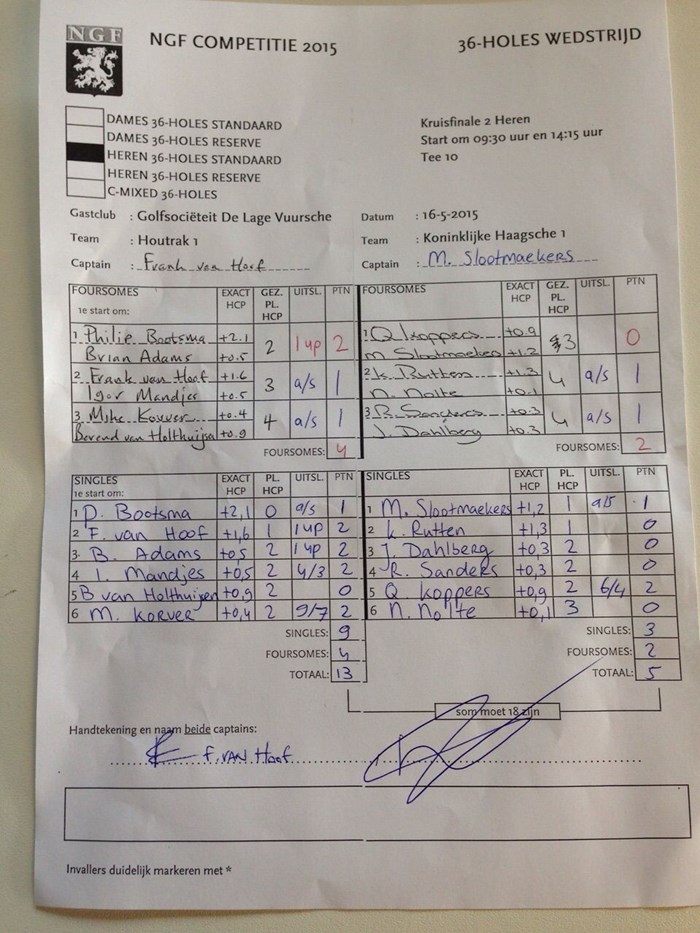 NGF
NGF COMPETITIE 2015
36-HOLES WEDSTRIJD
DAMES 36-HOLES STANDAARD
DAMES 36-HOLES RESERVE
HEREN 36-HOLES STANDAARD
HEREN 36-HOLES RESERVE
C-MIXED 36-HOLES
Kruisfinale 2 Heren
Start om 09:30 uur en 14:15 uur
Tee 10
Gastclub : Golfsociëteit De Lage Vuursche
Datum : 16-5-2015
Team : Houtrak 1
Team : Koninklijke Haagsche 1
Captain : Frank van Hoof
Captain : M. Slootmaekers
FOURSOMES EXACT HCP GEZ. PL. HCP UITSL. PTN
1e start om:
1 Philip Bootsma +2.1 2 1 up 2
Brian Adams +0.5
2 Frank van Hoof +1.6 3 a/s 1
Igor Mandjes +0.5
3 Mike Korver +0.4 4 a/s 1
Berend van Holthuijsen +0.9
FOURSOMES: 4
FOURSOMES EXACT HCP GEZ. PL. HCP UITSL. PTN
1 Q Koppers +0.9 3 0
M. Slootmaekers +1.2
2 K. Rutten +1.3 4 a/s 1
N. Nolte +0.1
3 R. Sanders +0.3 4 a/s 1
J. Dahlberg +0.3
FOURSOMES: 2
SINGLES EXACT HCP PL. HCP UITSL. PTN
1e start om:
1 P. Bootsma +2,1 0 a/s 1
2 F. van Hoof +1,6 1 1 up 2
3 B. Adams +0,5 2 1 up 2
4 I. Mandjes +0,5 2 4/3 2
5 B van Holthuijsen +0,9 2 0
6 M. Korver +0,4 2 9/7 2
SINGLES: 9
FOURSOMES: 4
TOTAAL: 13
SINGLES EXACT HCP PL. HCP UITSL. PTN
1 M. Slootmaekers +1,2 1 a/s 1
2 K. Rutten +1,3 1 0
3 J. Dahlberg +0,3 2 0
4 R. Sanders +0,3 2 0
5 Q. Koppers +0,9 2 6/4 2
6 N. Nolte +0,1 3 0
SINGLES: 3
FOURSOMES: 2
TOTAAL: 5
som moet 18 zijn
Handtekening en naam beide captains:
F. VAN Hoof
Invallers duidelijk markeren met *